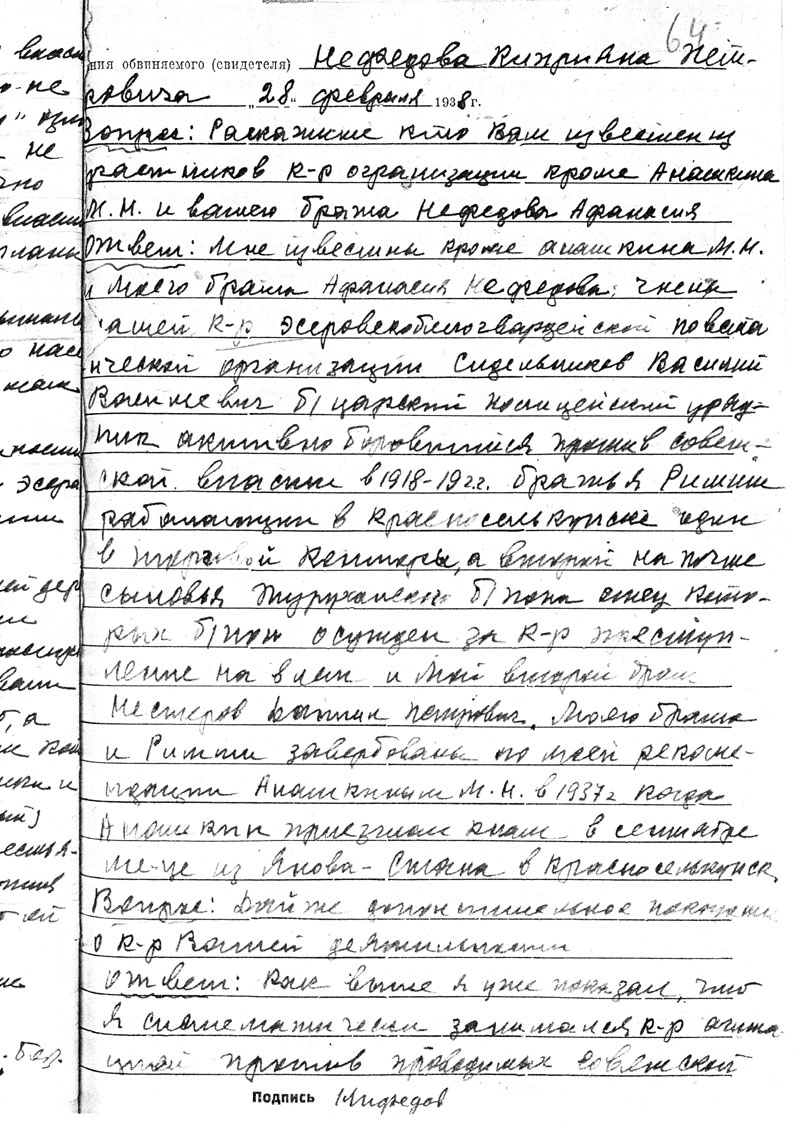 64
ния обвиняемого (свидетеля) Нефедова Киприяна Пет-
ровича „28" февраля 1938 г.
Вопрос: Раскажите кто Вам известен из
участников к-р огранизации кроме Анашкина
М.Н. и вашего брата Нефедова Афанасия
Ответ: Мне известны кроме анашкина М.Н.
и Моего брата Афанасия Нефедова, члены
нашей к-р эсеровскобелогвардейской повста
нческой организации Сидельников Василий
Васильевич б/царский полицейский уряд-
ник активно боровшийся против совет-
ской власти в 1918-192 г. братья Римши
работающии в красноселькупске один
в торговой Конторы, а второй на почте
сыновья Туруханского б/попа отец кото-
рых б/поп осужден за к-р преступ-
ление на 8 лет и мой второй брат
Нестеров Петрович. Моего брата
и Римши завербованы по моей рекоме-
ндации Анашкиным М.Н. в 1937 г когда
Анашкин приезжал к нам в сентябре
м-це из Янова-Стана в Красноселькупск
Вопрос: Дайте дополнительное показание
о к-р Вашей деятельности
Ответ: Как выше я уже показал, что
я систематически занимался к-р агита
цией против проводимых советской
Подпись Нифедов